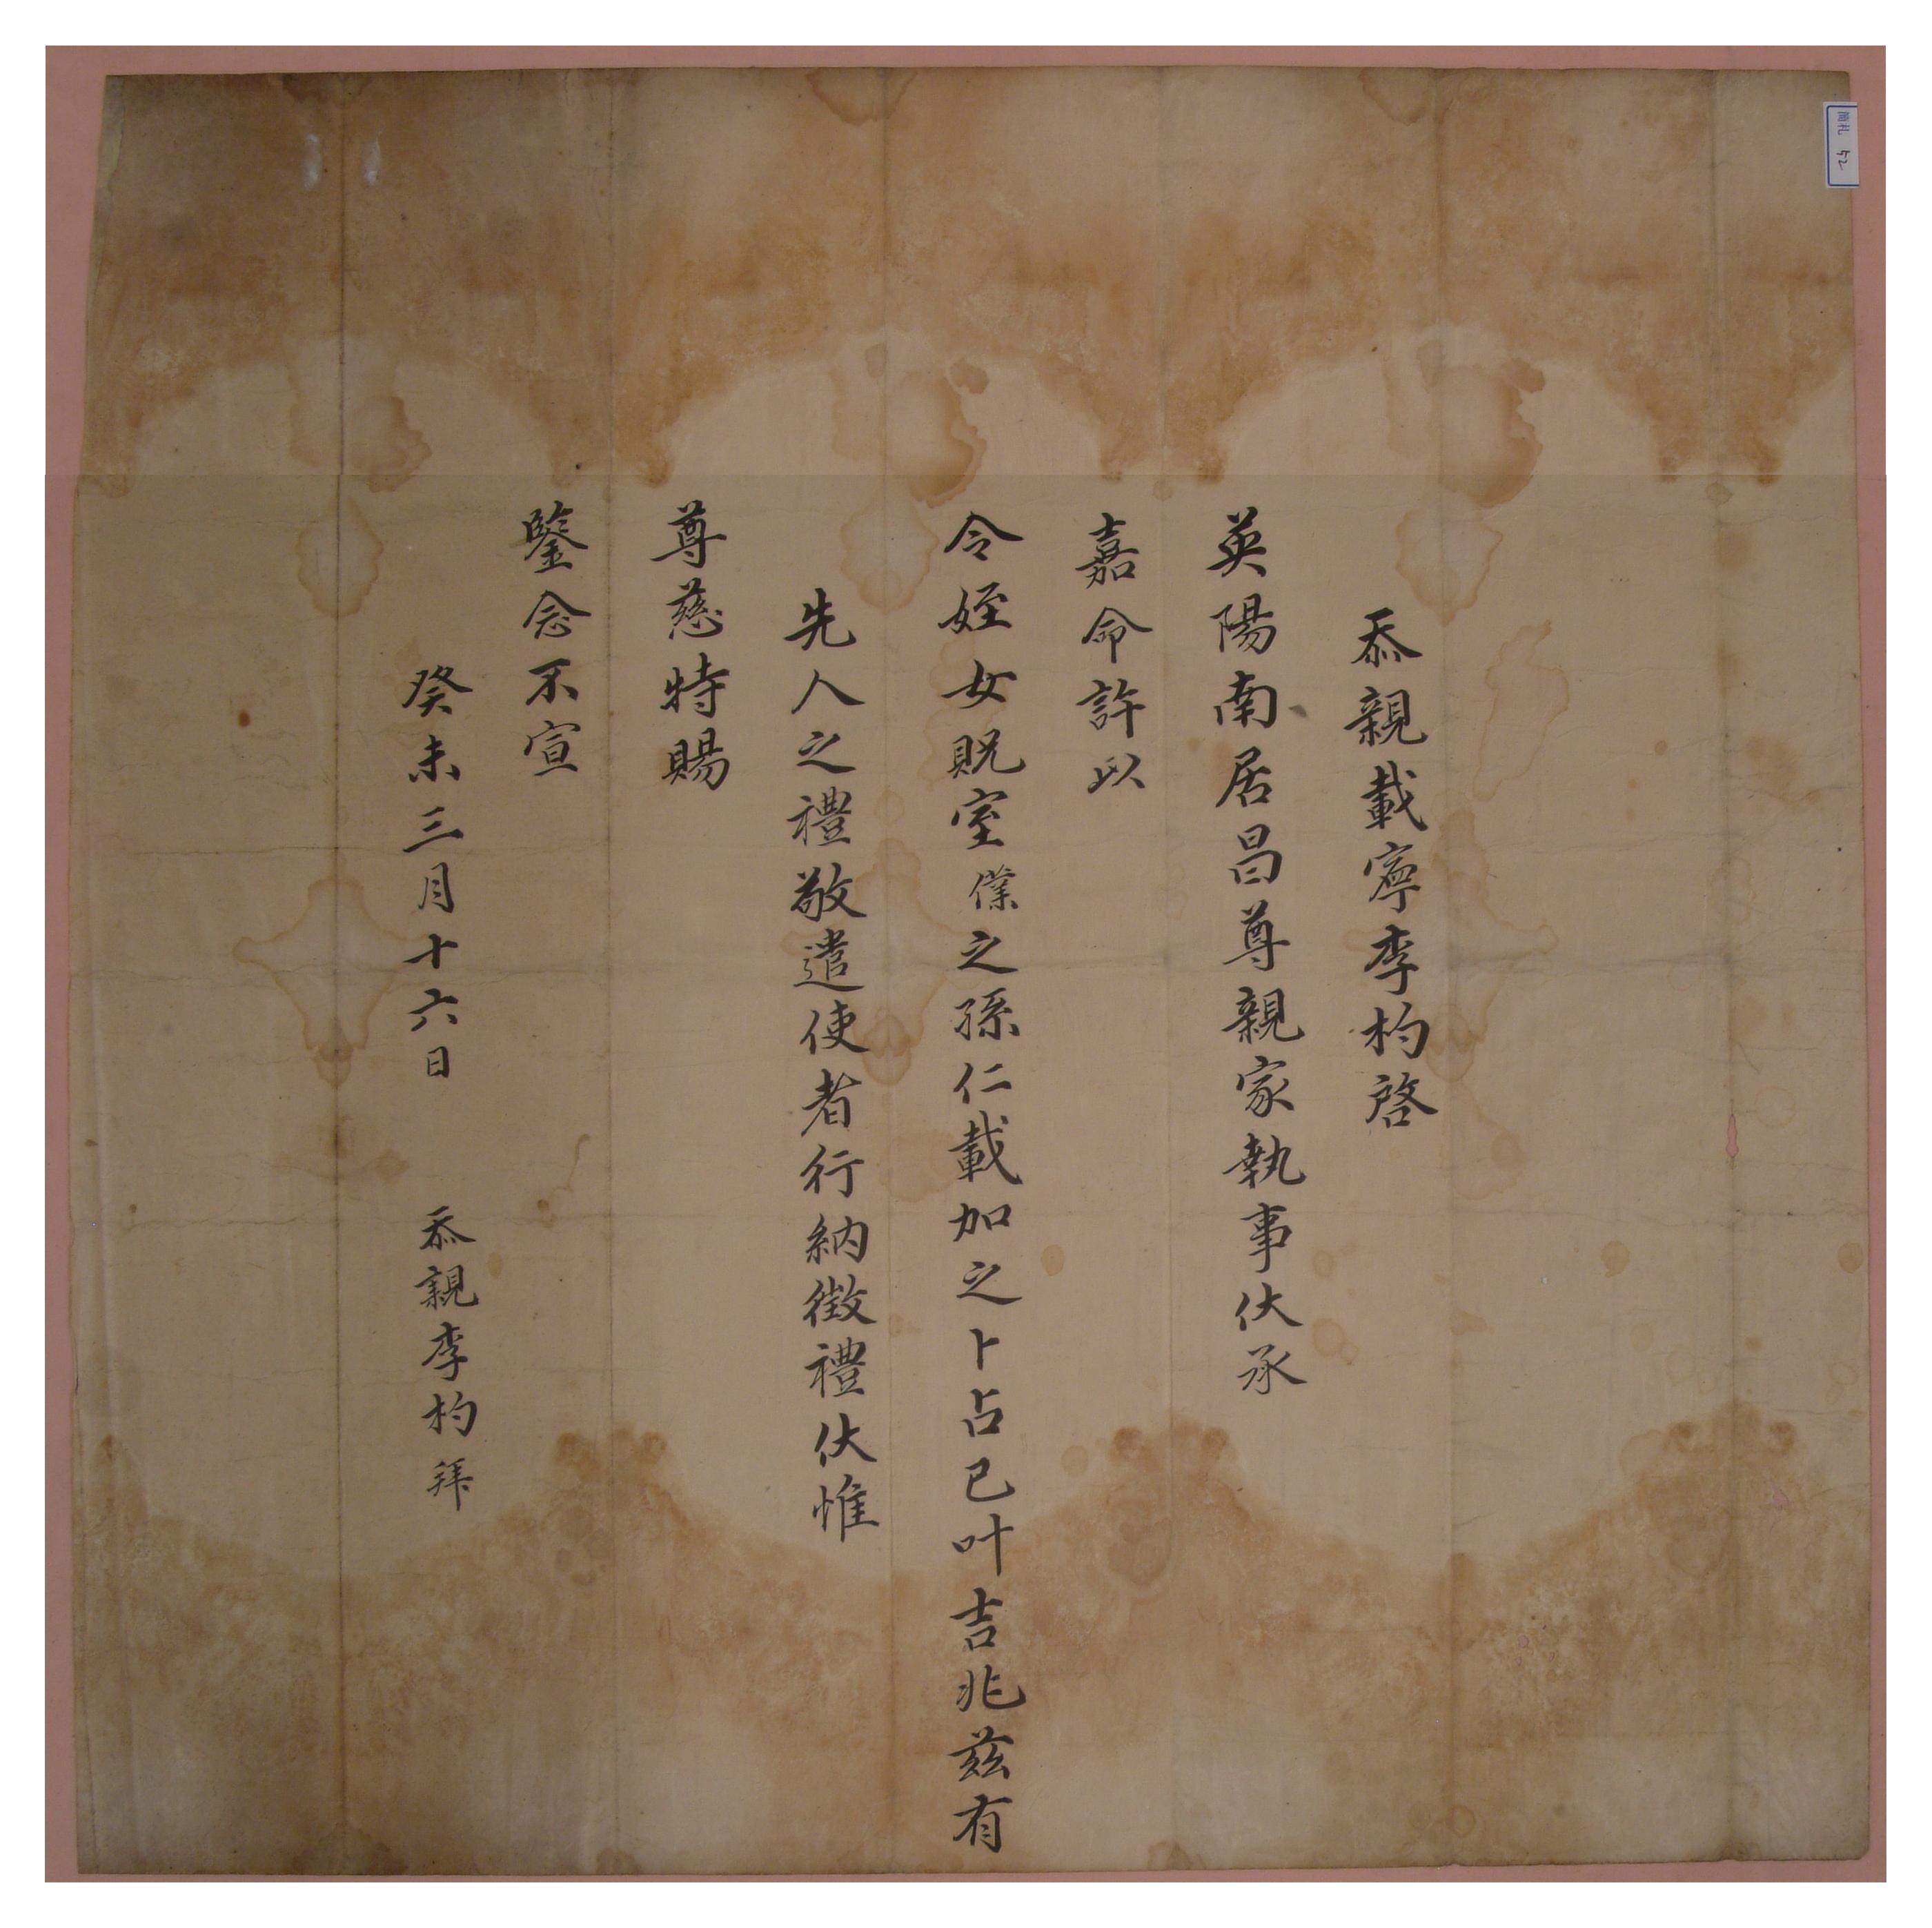 忝親載寧李杓啓
英陽南居昌尊親家執事伏承
嘉命許以
令姪女貺室僕之孫仁載加之卜占已叶吉兆玆有
先人之禮敬遣使者行納徵禮伏惟
尊慈特賜
鑒念不宣
癸未三月十六日 忝親李杓拜
簡札 42